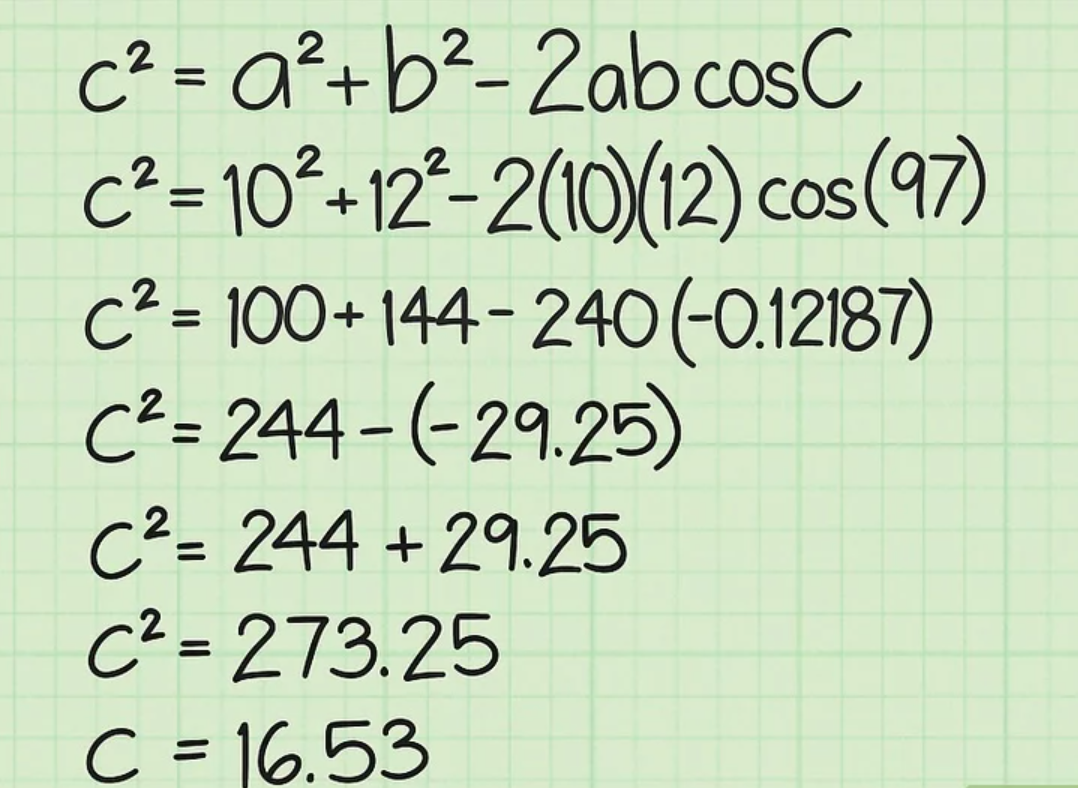 c² = a² + b² - 2ab cosC
c² = 10² + 12² - 2(10)(12) cos(97)
c² = 100 + 144 - 240(-0.12187)
c² = 244 - (-29.25)
c² = 244 + 29.25
c² = 273.25
c = 16.53